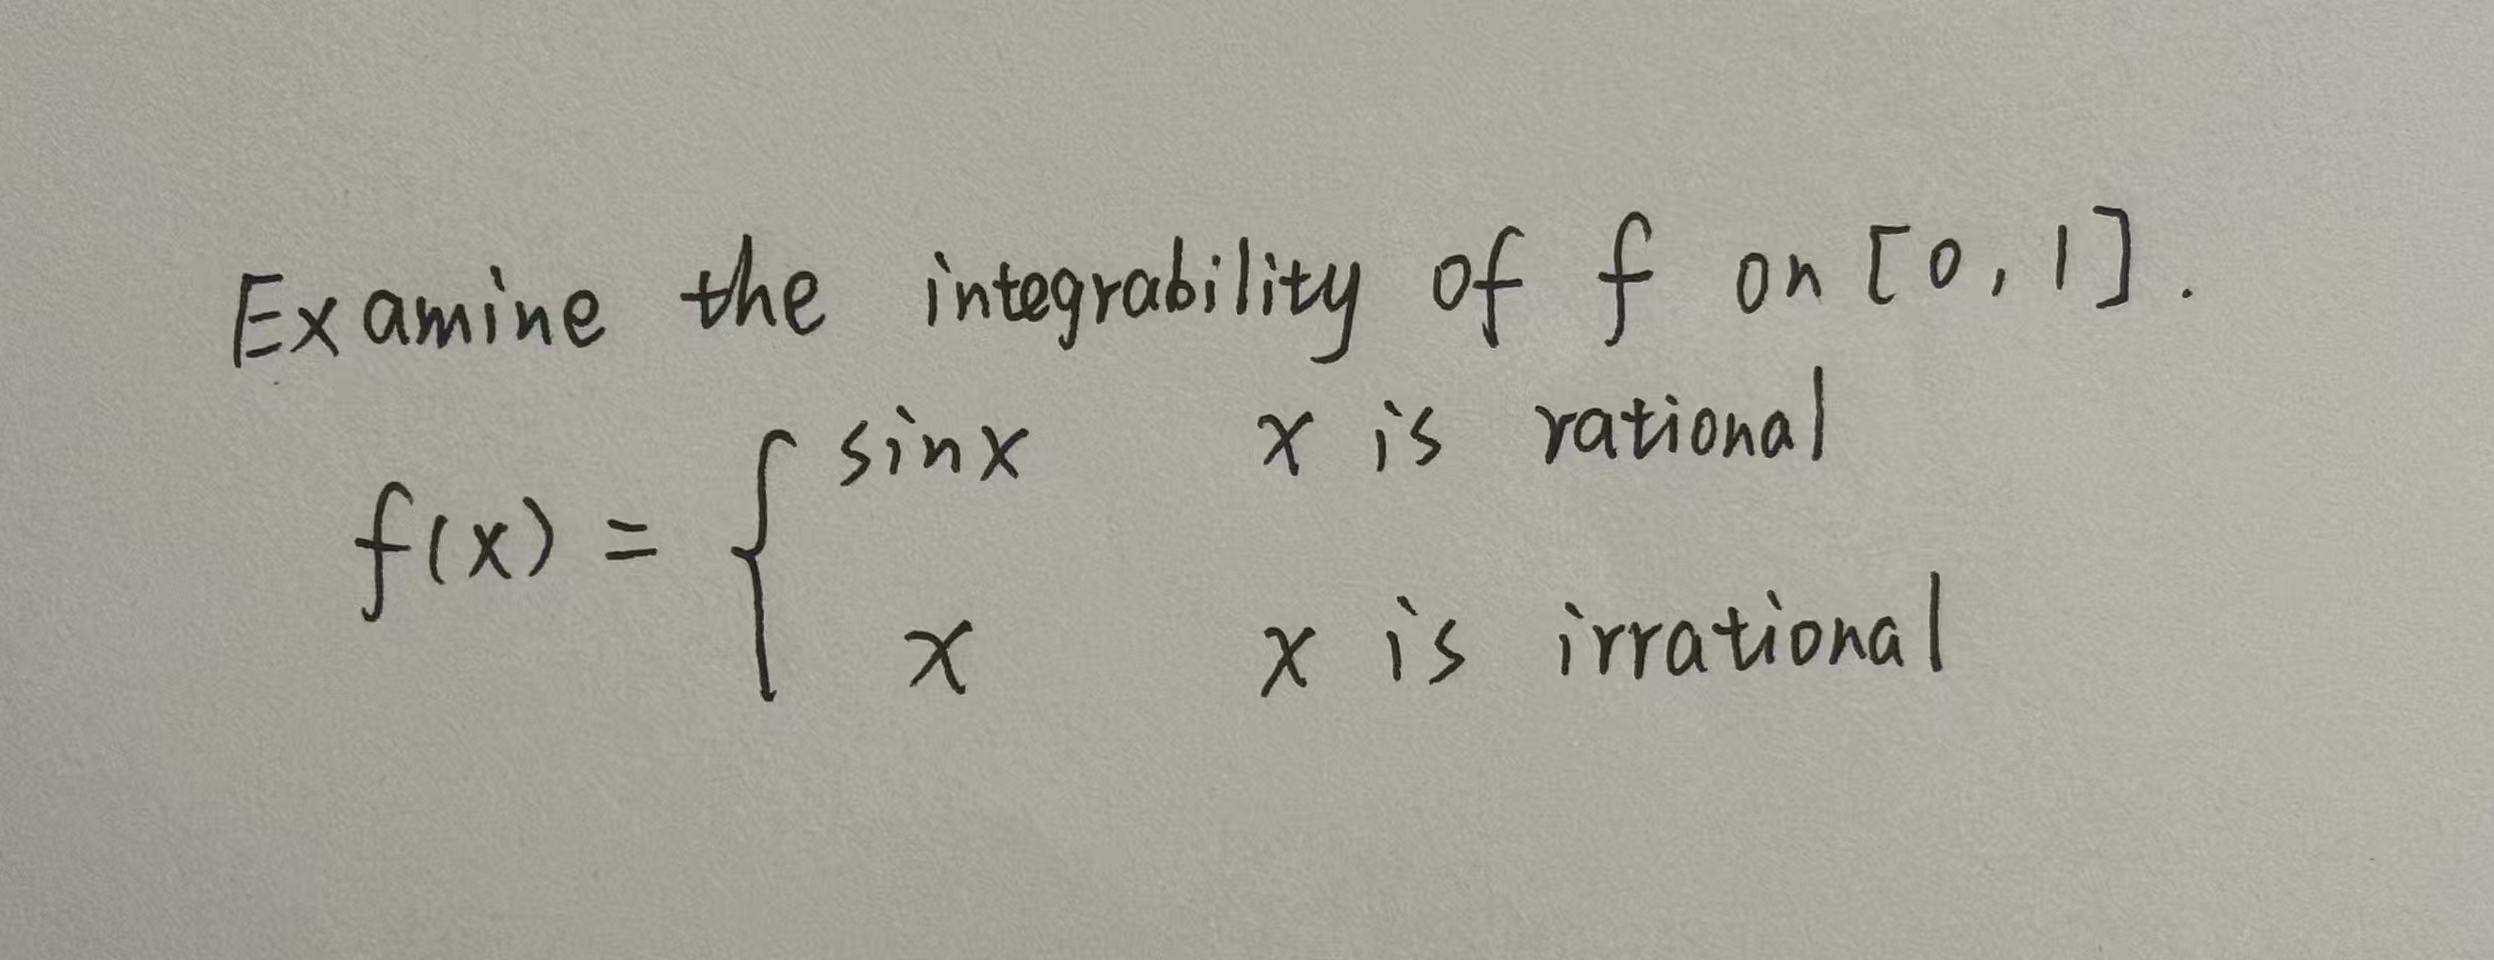 Examine the integrability of f on [0, 1].
sinx x is rational
f(x) = {
x x is irrational